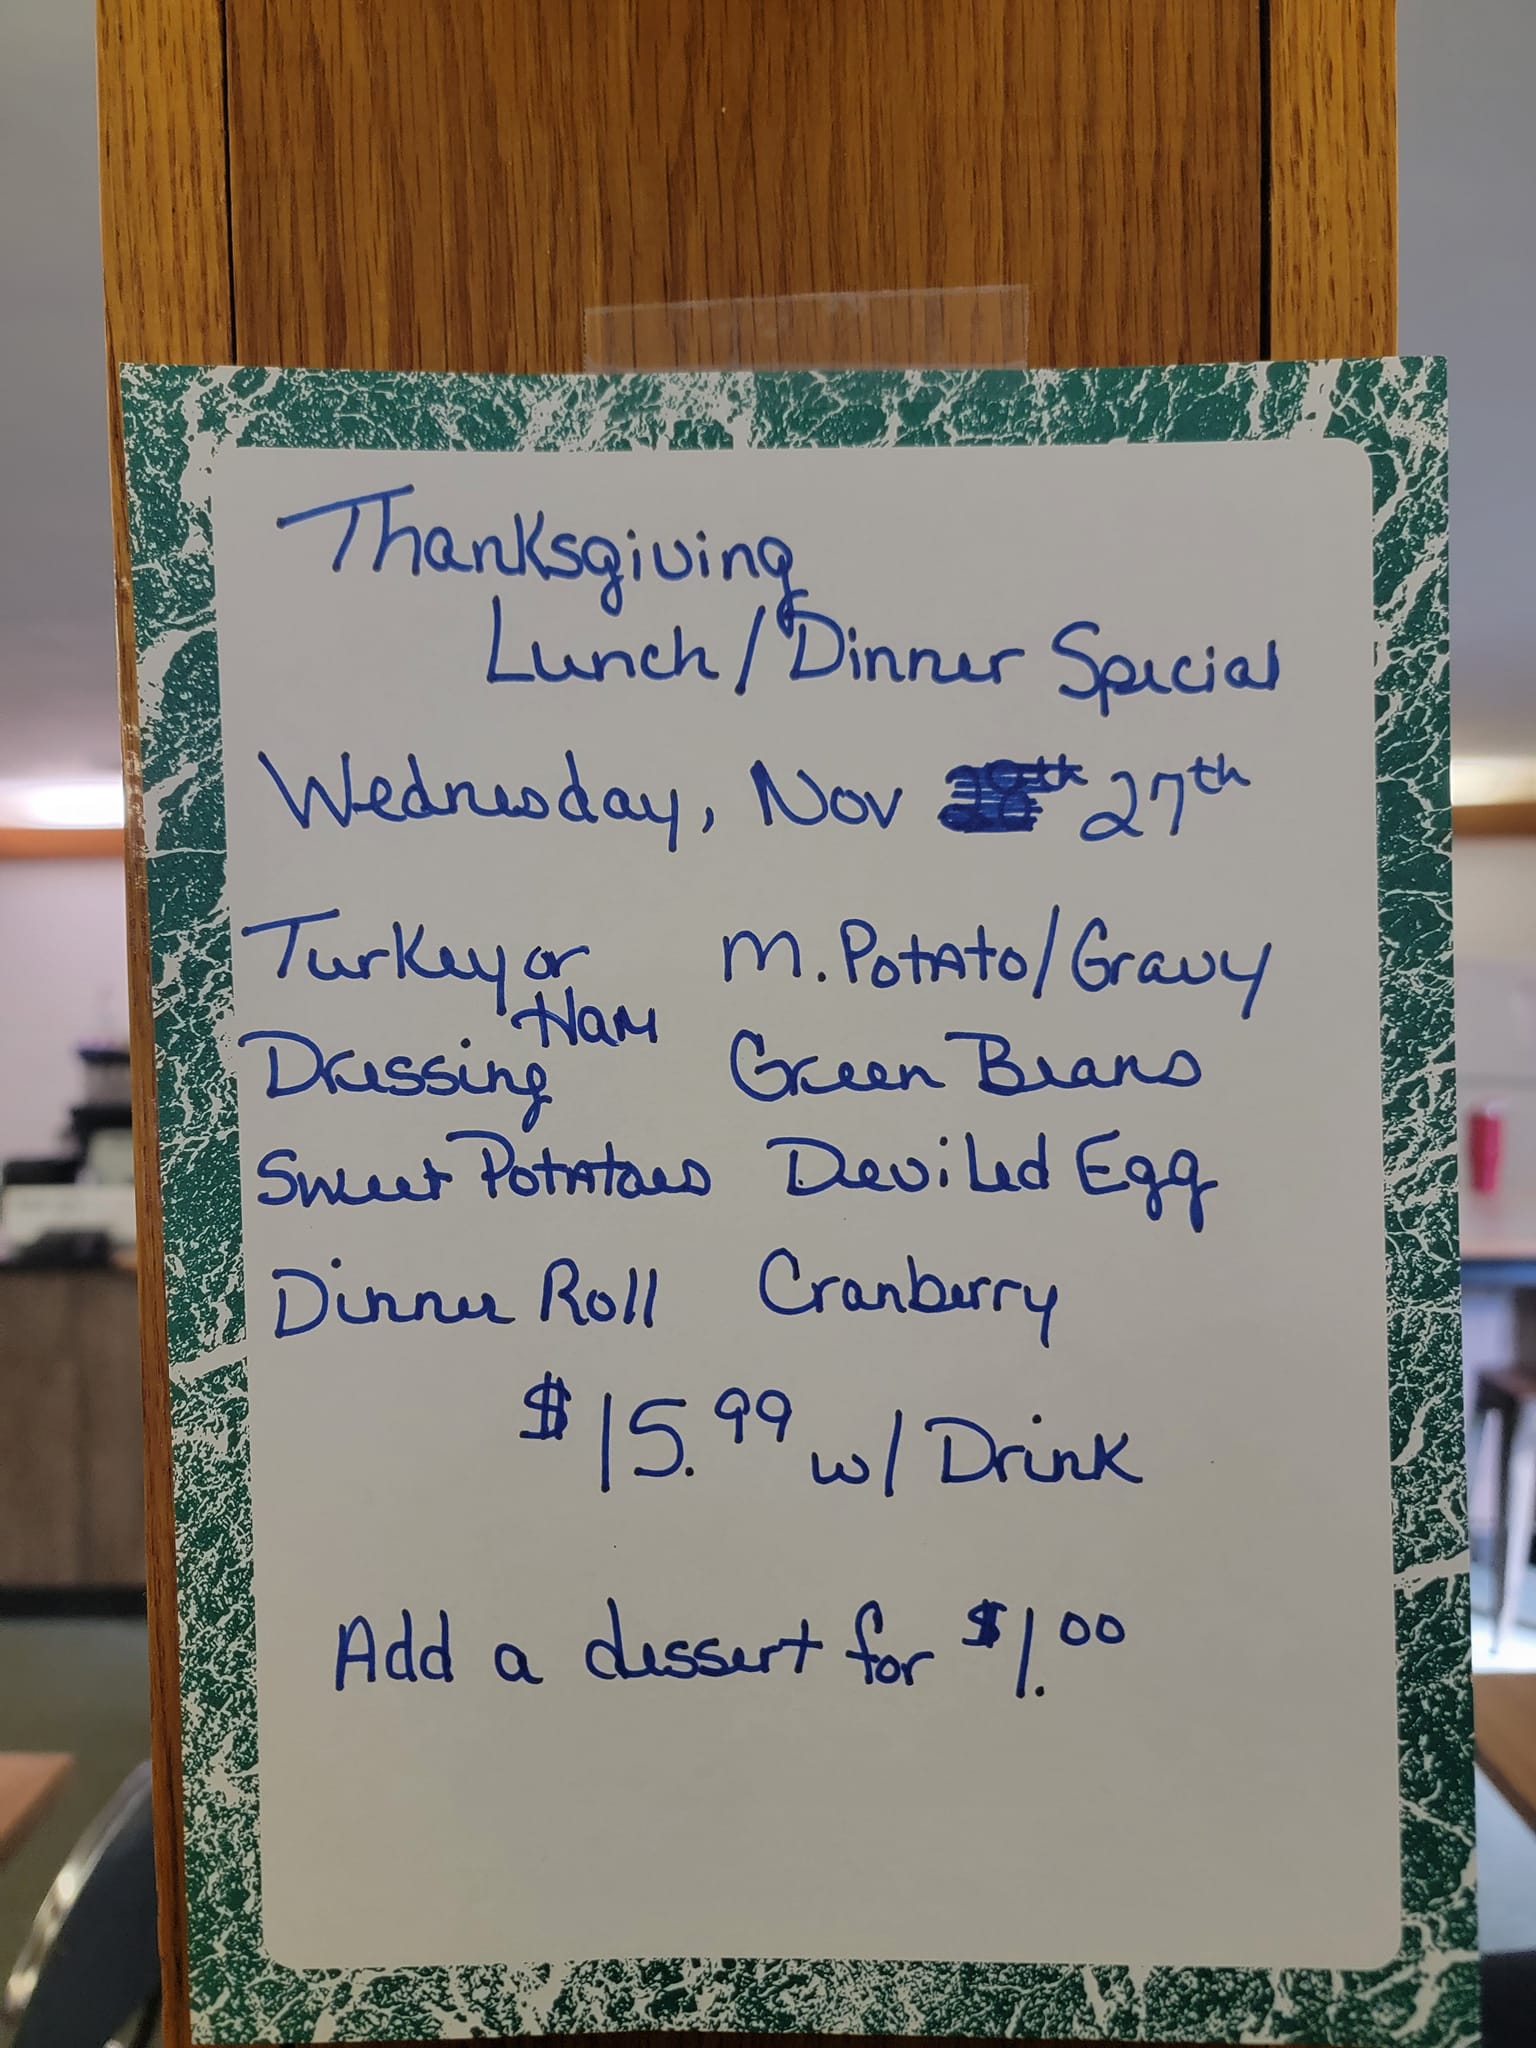 Thanksgiving
Lunch / Dinner Special
Wednesday, Nov 27th
Turkey or Ham M. Potato/Gravy
Dressing Green Beans
Sweet Potatoes Deviled Egg
Dinner Roll Cranberry
$15.99 w/ Drink
Add a dessert for $1.00